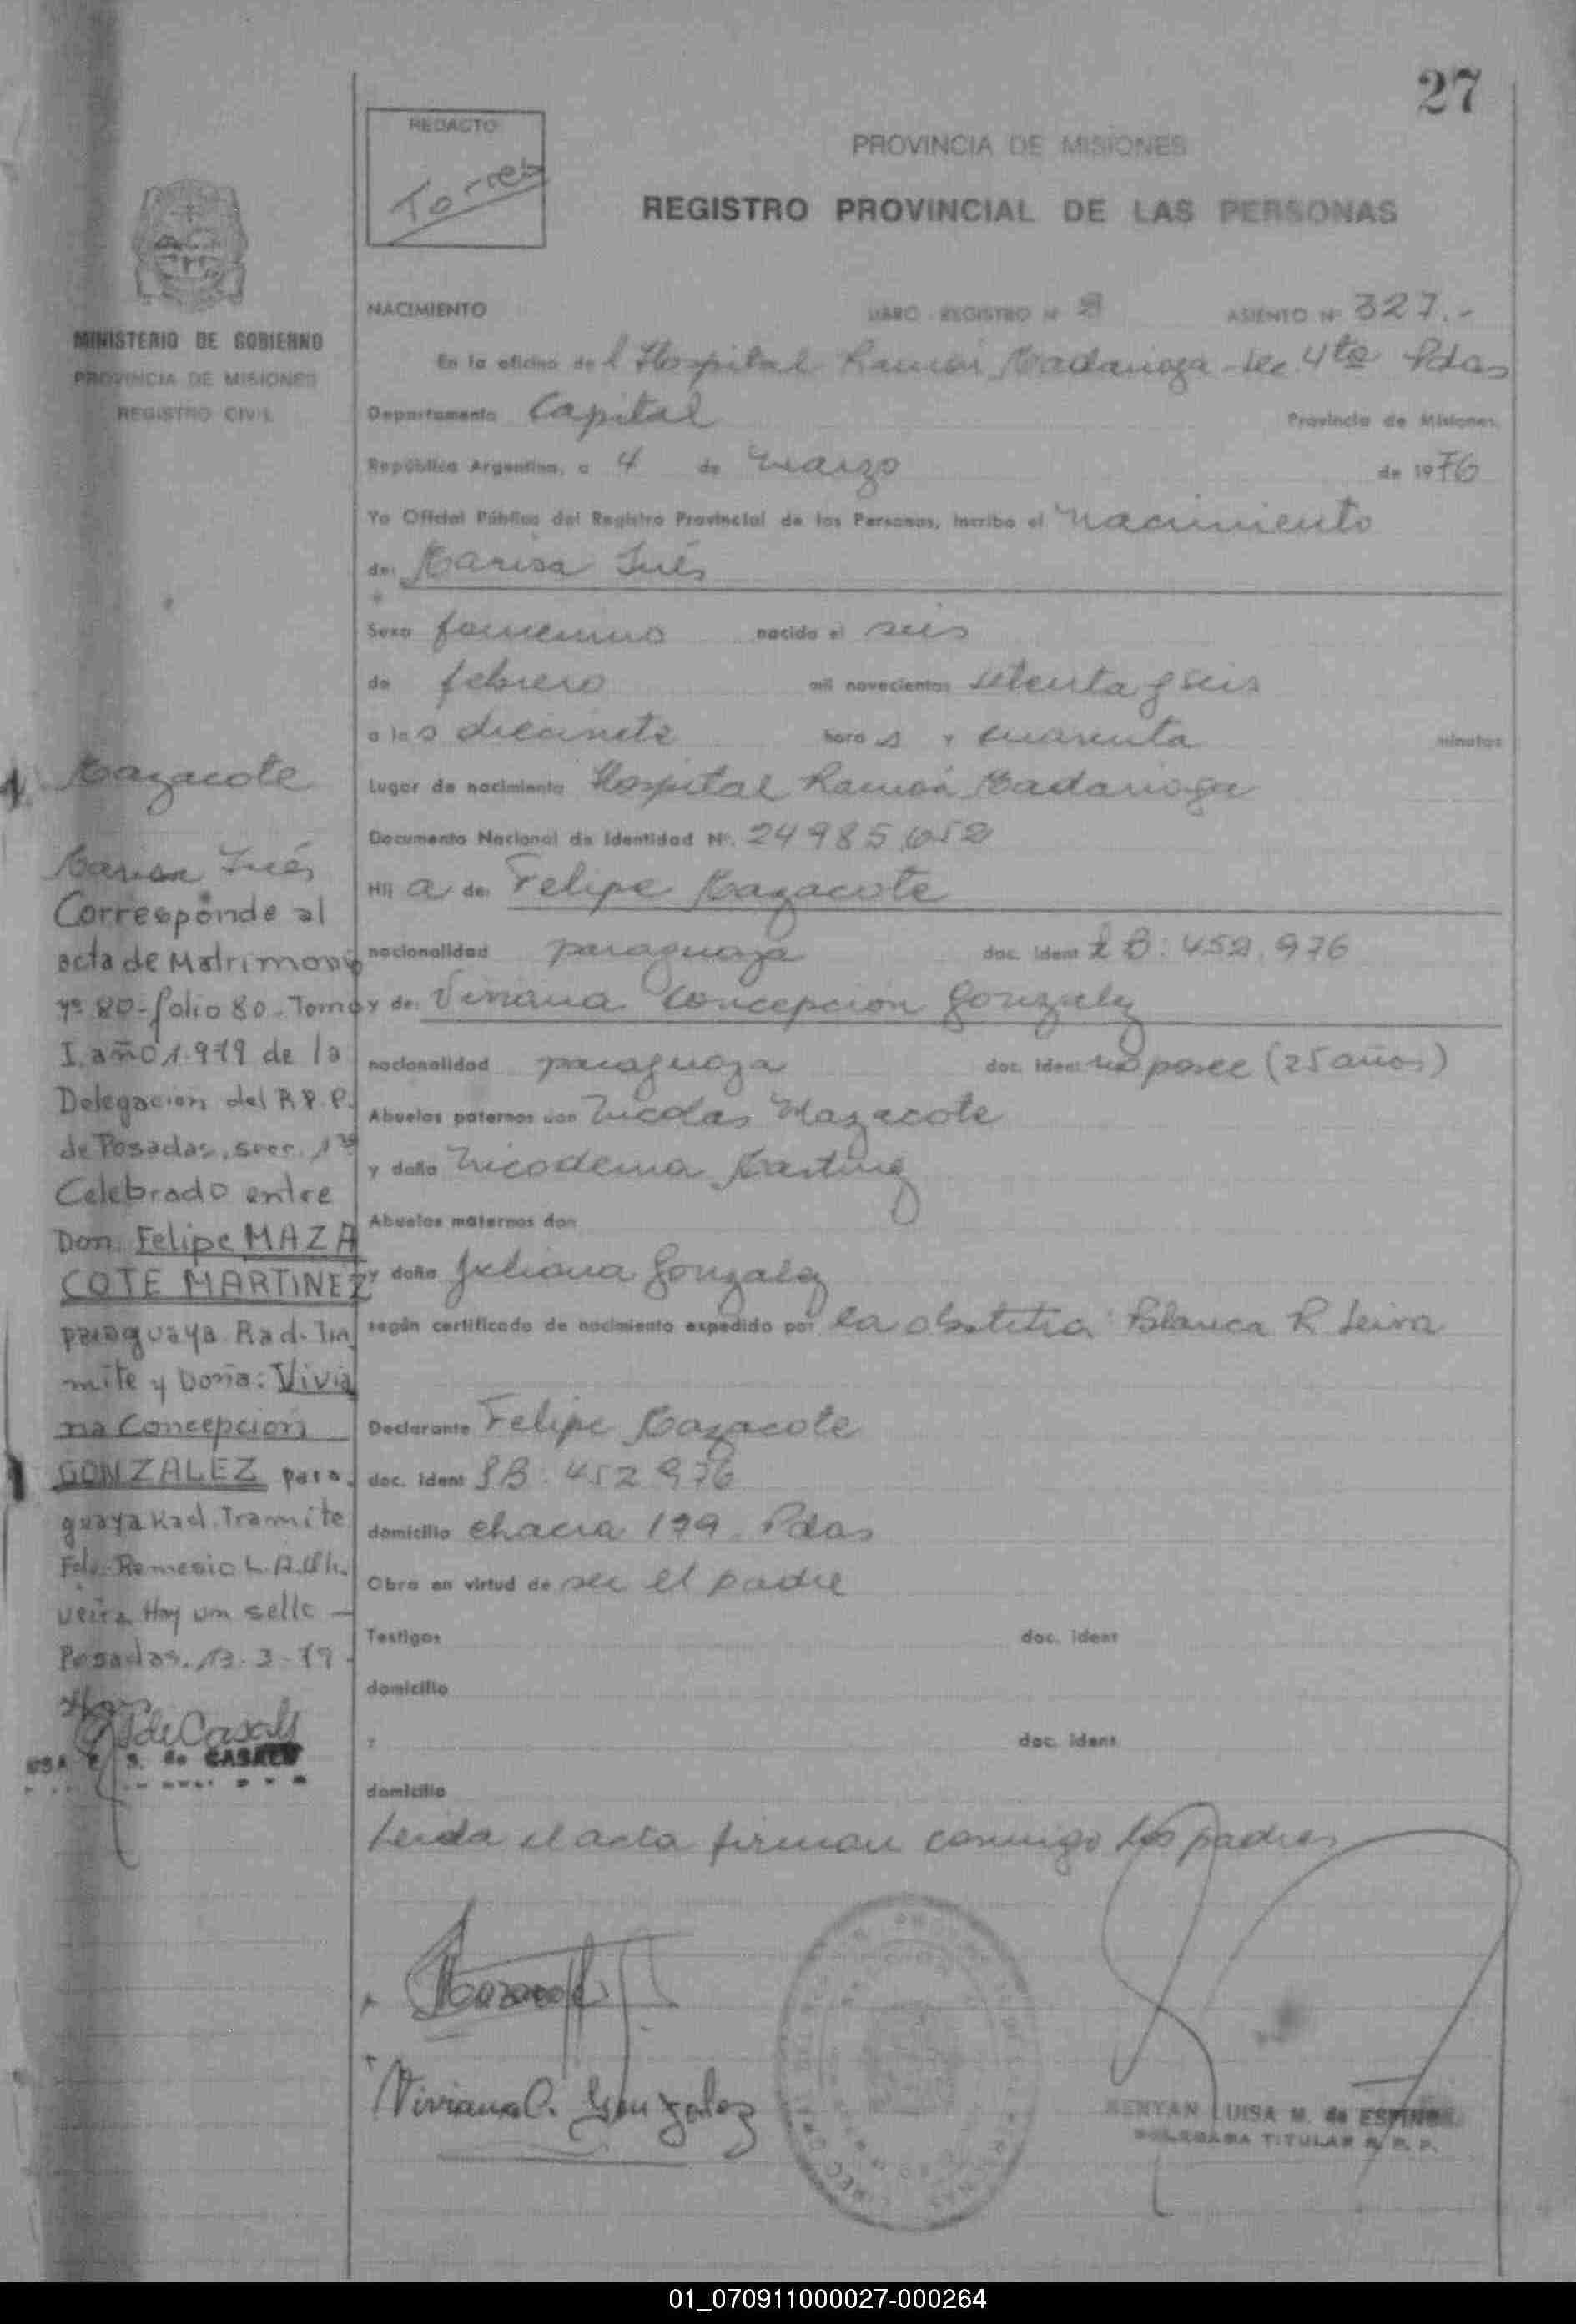 27
REDACTO
Torres
PROVINCIA DE MISIONES
REGISTRO PROVINCIAL DE LAS PERSONAS
MINISTERIO DE GOBIERNO
PROVINCIA DE MISIONES
REGISTRO CIVIL
NACIMIENTO LIBRO - REGISTRO Nº ASIENTO Nº 327.-
En la oficina del Hospital Ramón Madariaga - Sec. 4ta Pdas
Departamento Capital Provincia de Misiones,
República Argentina, a 4 de Marzo de 1976
Yo Oficial Público del Registro Provincial de las Personas, inscribo el nacimiento
de: Marisa Inés
Sexo femenino nacido el seis
de febrero mil novecientos setenta y seis
a las diecisiete horas y cuarenta minutos
Lugar de nacimiento Hospital Ramón Madariaga
Documento Nacional de Identidad Nº. 24985.652
Hija de: Felipe Mazacote
nacionalidad paraguaya doc. ident 452.976
y de: Viviana Concepción Gonzalez
nacionalidad paraguaya doc. ident no posee (25 años)
Abuelos paternos don Nicolas Mazacote
y doña Nicodema Martinez
Abuelos maternos don
y doña Juliana Gonzalez
según certificado de nacimiento expedido por la obstetra Blanca R Leiva
Declarante Felipe Mazacote
doc. ident 452976
domicilio chacra 199 Pdas
Obra en virtud de ser el padre
Testigos doc. ident
domicilio
y doc. ident
domicilio
Leida el acta firman conmigo los padres
Mazacote
Marisa Inés
Corresponde al
acta de Matrimonio
Nº 80-folio 80-Tomo
I. año 1.979 de la
Delegación del R.P.P.
de Posadas, secc. 1ra
Celebrado entre
Don Felipe MAZA
COTE MARTINEZ
paraguaya Rad. Trá
mite y Doña: Vivia
na Concepción
GONZALEZ para.
guaya Rad. Tramite
Fdo. Remesio L.
Hay un sello -
Posadas, 13-3-79.
de Casals
S. de CASALS
Mazacote
Viviana C. Gonzalez
LUISA M. de ESPINOSA
DELEGADA TITULAR R. P. P.
01_070911000027-000264